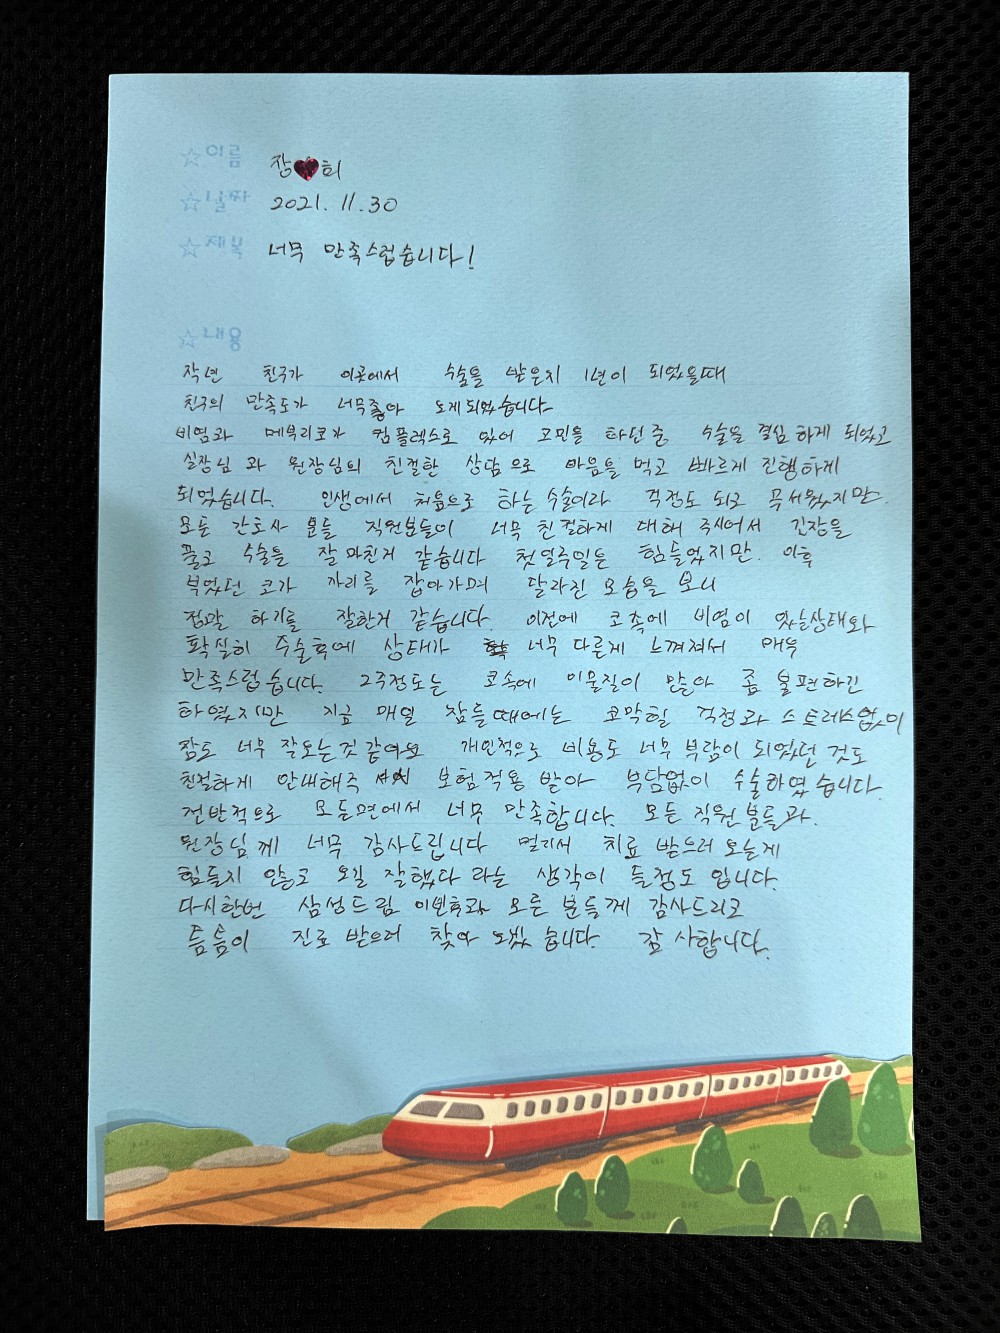 ☆이름 장♥희
☆날짜 2021. 11. 30
☆제목 너무 만족스럽습니다!
☆내용
작년 친구가 이곳에서 수술을 받은지 1년이 되었을때
친구의 만족도가 너무좋아 오게되었습니다
비염과 메부리코가 컴플렉스로 있어 고민을 하던중 수술을 결심하게 되었고
실장님과 원장님의 친절한 상담으로 마음을 먹고 빠르게 진행하게
되었습니다. 인생에서 처음으로 하는 수술이라 걱정도 되고 무서웠지만.
모든 간호사 분들 직원분들이 너무 친절하게 대해 주시어서 긴장을
풀고 수술을 잘 마친거 같습니다 첫 일주일은 힘들었지만. 이후
부었던 코가 자리를 잡아가며 달라진 모습을 보니
정말 하기를 잘한거 같습니다. 이전에 코속에 비염이 있는상태와
확실히 수술후에 상태가 너무 다른게 느껴져서 매우
만족스럽습니다. 2주정도는 코속에 이물질이 많아 좀 불편하긴
하였지만 지금 매일 잠들때에는 코막힐 걱정과 스트레스없이
잠도 너무 잘오는것 같아요 개인적으로 비용도 너무 부담이 되었던 것도
친절하게 안내해주셔서 보험적용 받아 부담없이 수술하였습니다.
전반적으로 모든면에서 너무 만족합니다. 모든 직원분들과.
원장님께 너무 감사드립니다 멀리서 치료 받으러 오는게
힘들지 않고 오길 잘했다 라는 생각이 들정도 입니다.
다시한번 삼성드림 이비후과 모든 분들께 감사드리고
틈틈이 진료 받으러 찾아 오겠습니다. 감사합니다.